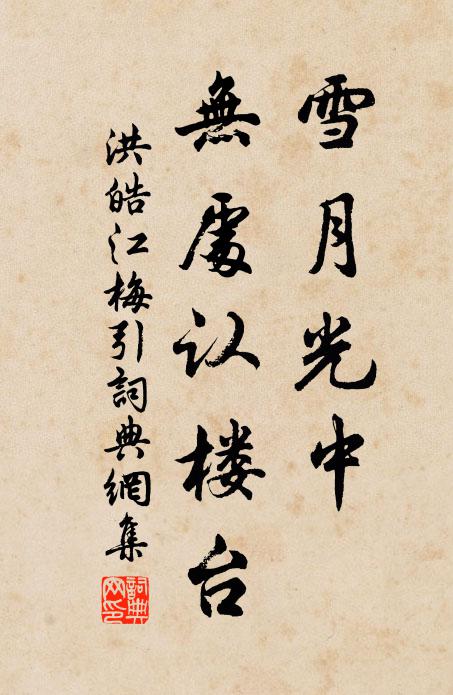 雪月光中
無處认楼台
洪皓江梅引詞典網集
詞典網印